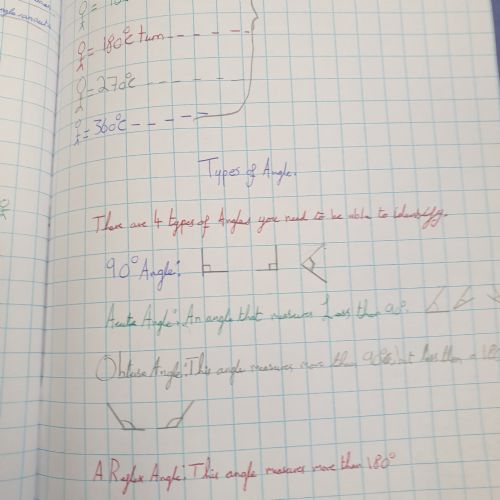 = 180°c turn
= 270°c
= 360°c
Types of Angle.
There are 4 types of Angles you need to be able to identify.
90° Angle:
Acute Angle: An angle that measures Less than 90°.
Obtuse Angle: This angle measures more than 90° but less than a 180°
A Reflex Angle: This angle measures more than 180°